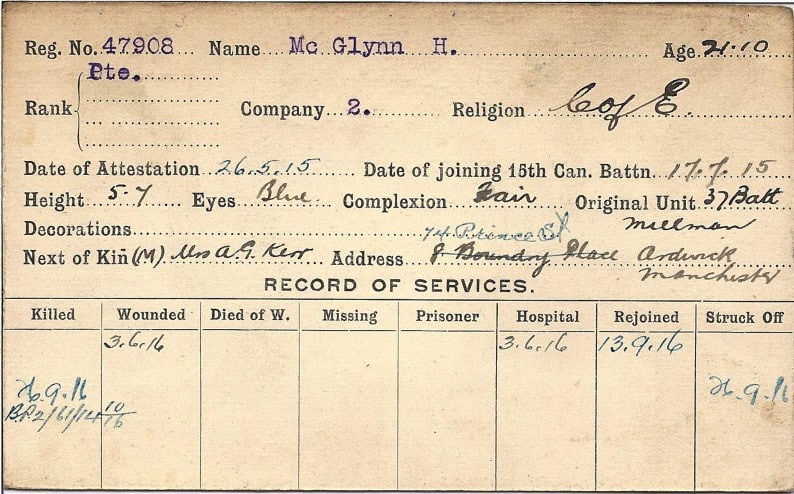 Reg. No. 47908 Name Mc Glynn H. Age 21.10
Rank Pte. Company 2. Religion C of E.
Date of Attestation 26.5.15 Date of joining 15th Can. Battn. 17.7.15
Height 5-7 Eyes Blue Complexion Fair Original Unit 37 Batt
Decorations 74 Prince St Millman
Next of Kin (M) Mrs A.G. Kerr Address 8 Boundry Place Ardwick
Manchester
RECORD OF SERVICES.
Killed Wounded Died of W. Missing Prisoner Hospital Rejoined Struck Off
3.6.16 3.6.16 13.9.16
26.9.16 26.9.16
B.P.2/61/14 10/16